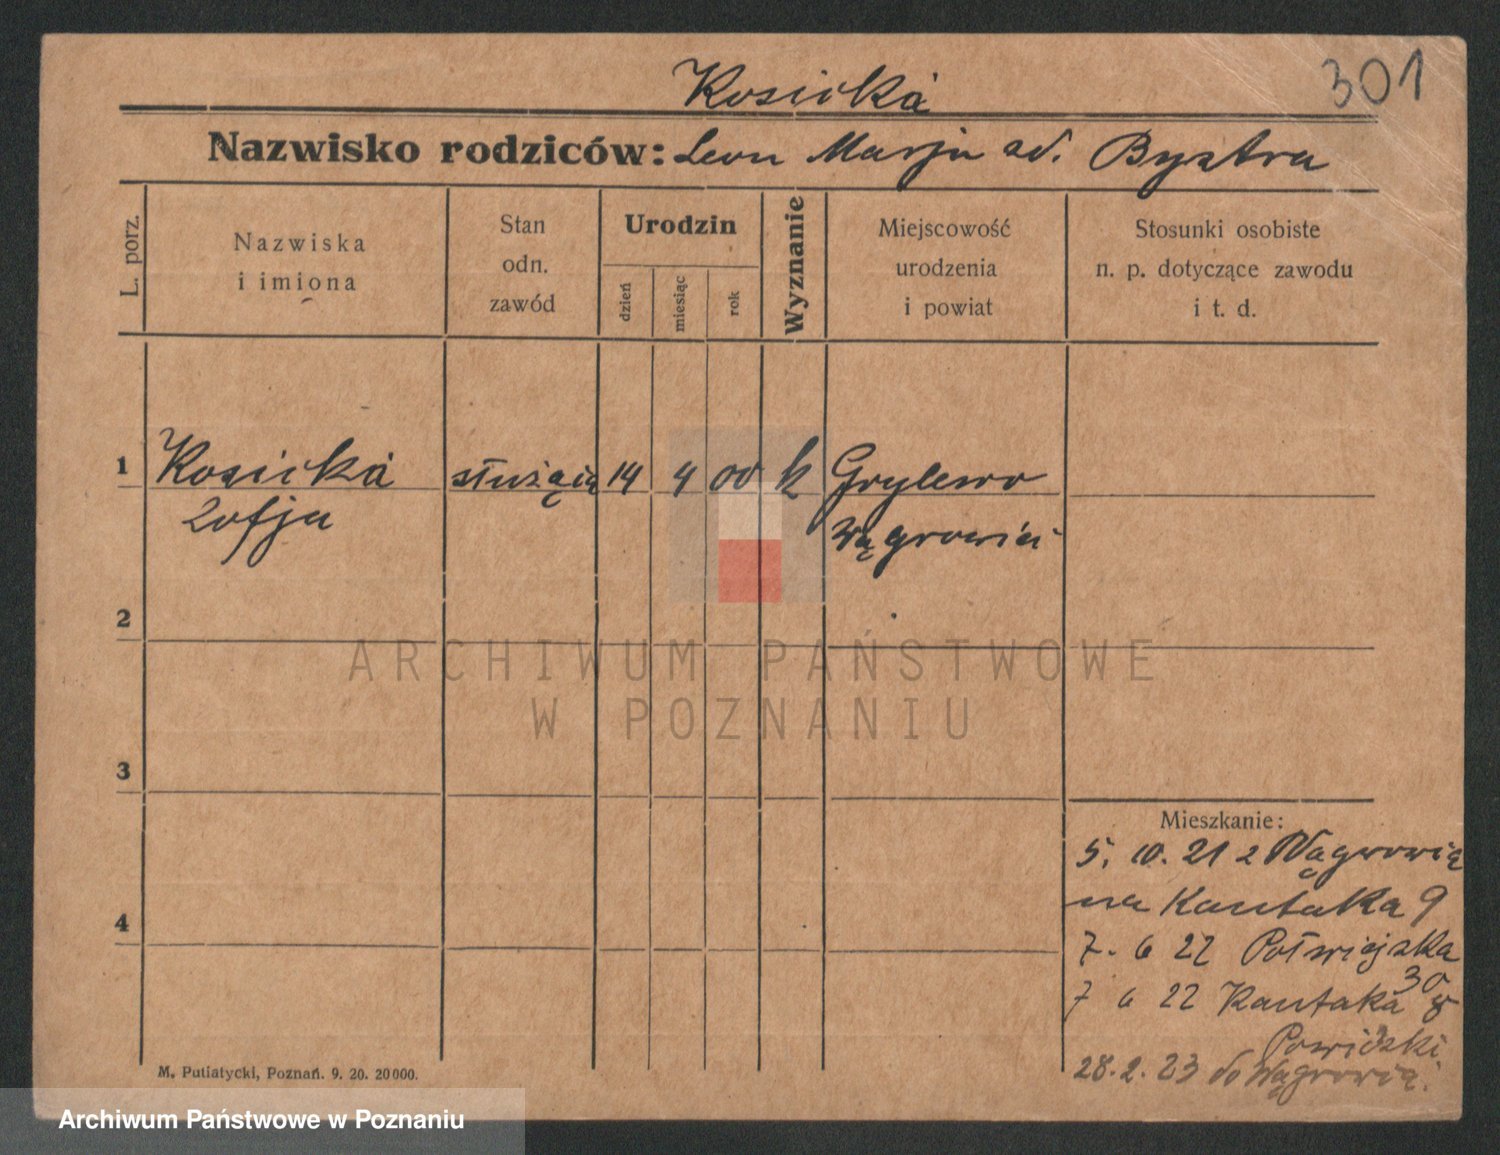 301
Kosicka
Nazwisko rodziców: Leon Marja od. Bystra
L. porz.
Nazwiska
i imiona
Stan
odn.
zawód
Urodzin
dzień
miesiąc
rok
Wyznanie
Miejscowość
urodzenia
i powiat
Stosunki osobiste
n. p. dotyczące zawodu
i t. d.
1 Kosicka służąca 14 4 00 k Grylewo
Zofja Wągrowiec
2
ARCHIWUM PAŃSTWOWE
W POZNANIU
3
Mieszkanie:
5. 10. 21 z Wągrowca
na Kantaka 9
4
7. 6 22 Półwiejska
30
7 6 22 Kantaka 8
Powidzki
28. 2. 23 do Wągrowca
M. Putiatycki, Poznań. 9. 20. 20000.
Archiwum Państwowe w Poznaniu